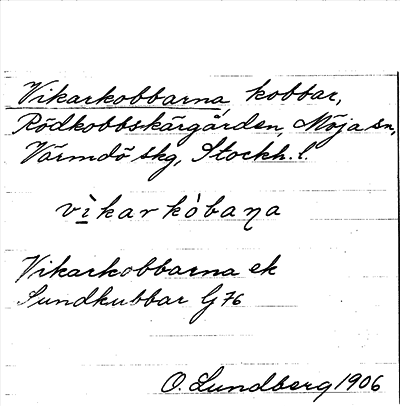 Vikarkobbarna, kobbar,
Rödkobbskärgården, Möja sn,
Värmdö skg, Stockh. l.
vìkarkòbaṉa
Vikarkobbarna ek
Sundkubbar G 76
O. Lundberg 1906